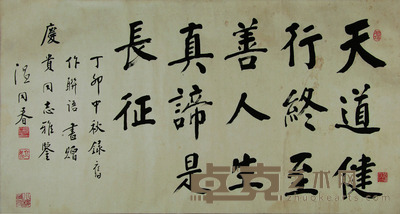 天道健
行終至
善人生
真諦是
長征
丁卯中秋錄舊
作聯語書贈
慶貴同志雅鑒
温同春
卓克艺术网